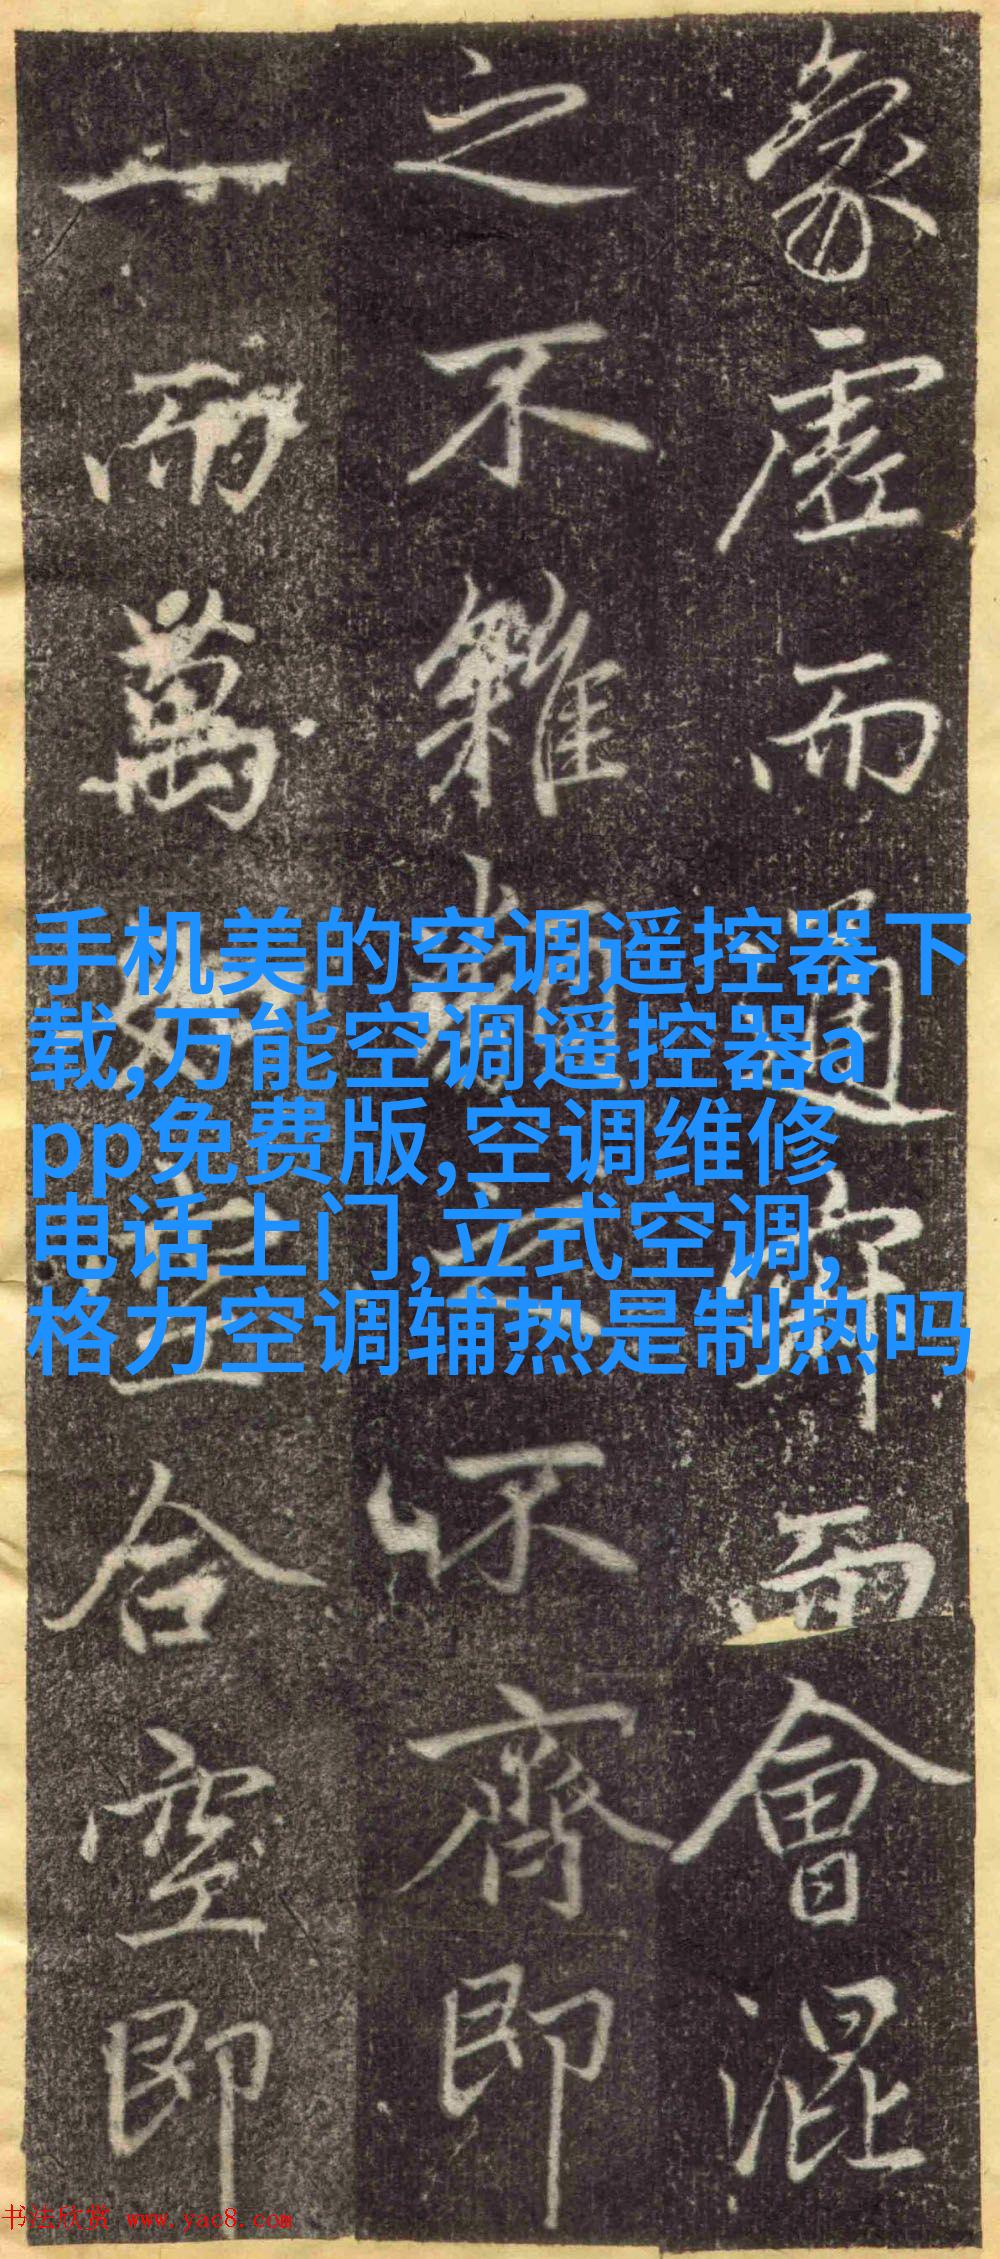 象虛而通而會混
之不雜不齊即
一而萬合空即
手机美的空调遥控器下
载,万能空调遥控器a
pp免费版,空调维修
电话上门,立式空调,
格力空调辅热是制热吗
书法欣赏 www.yac8.com